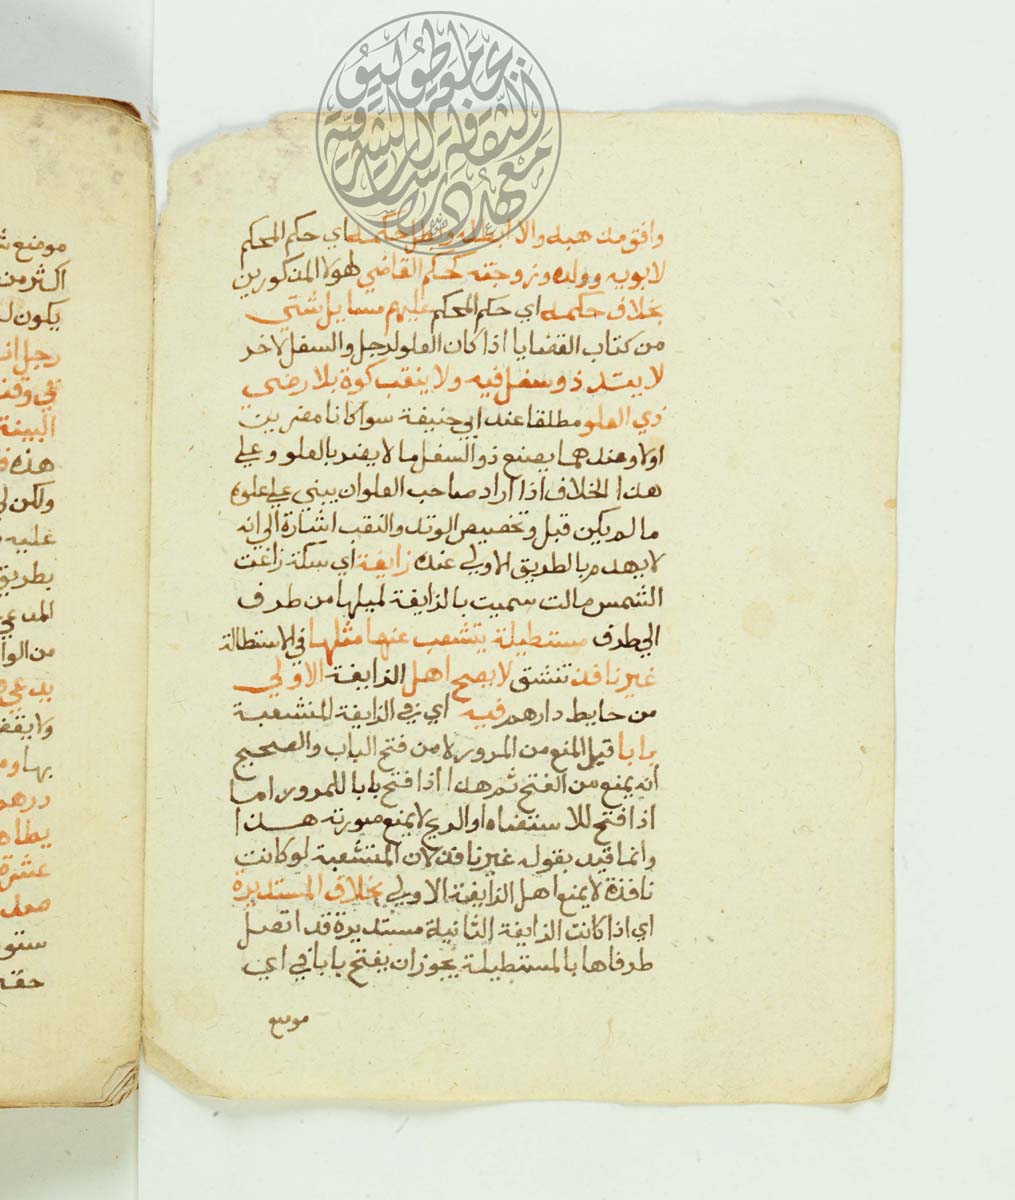 وافق مذهبه والا ابطله وبطل حكمه اي حكم المحكم
لابويه وولده وزوجته كحكم القاضي لهولا المذكورين
بخلاف حكمه اي حكم المحكم عليهم مسايل شتي
من كتاب القضايا اذا كان العلو لرجل والسفل لاخر
لا يتد ذو سفل فيه ولا ينقب كوة بلا رضي
ذي العلو مطلقا عند ابي حنيفة سوا كانا مضرين
اولا وعندهما يصنع ذو السفل ما لا يضر بالعلو وعلي
هذا الخلاف اذا اراد صاحب العلو ان يبني علي علوه
ما لم يكن قبل وتخصيص الوتد والنقب اشارة الي انه
لا يهدم بالطريق الاولي عنده زايغة اي سكة زاغت
الشمس مالت سميت بالزايغة لميلها من طرف
الي طرف مستطيلة يتشعب عنها مثلها في الاستطالة
غير نافذ تنشق لا يصح اهل الزايغة الاولي
من حايط دارهم فيه اي في الزايغة المنشعبة
بابا قيل المنع من المرور لا من فتح الباب والصحيح
انه يمنع من الفتح ثم هذا اذا فتح بابا للمرور اما
اذا فتح للاستضاه او الريح لا يمنع صورته هذا
وانما قيد بقوله غير نافذ لان المنتشعبة لو كانت
نافذة لا يمنع اهل الزايغة الاولي بخلاف المستديرة
اي اذا كانت الزايغة الثانية مستديرة قد اتصل
طرفاها بالمستطيلة يجوز ان يفتح بابا في اي
موضع
موضع
اكثر من
رجل
البينة
هذه
ولكن
عليه
بطريق
المدعي
يدعي
بها
درهم
عشرة
حقه
معهد الثقافة والدراسات الشرقية
جامعة طوكيو